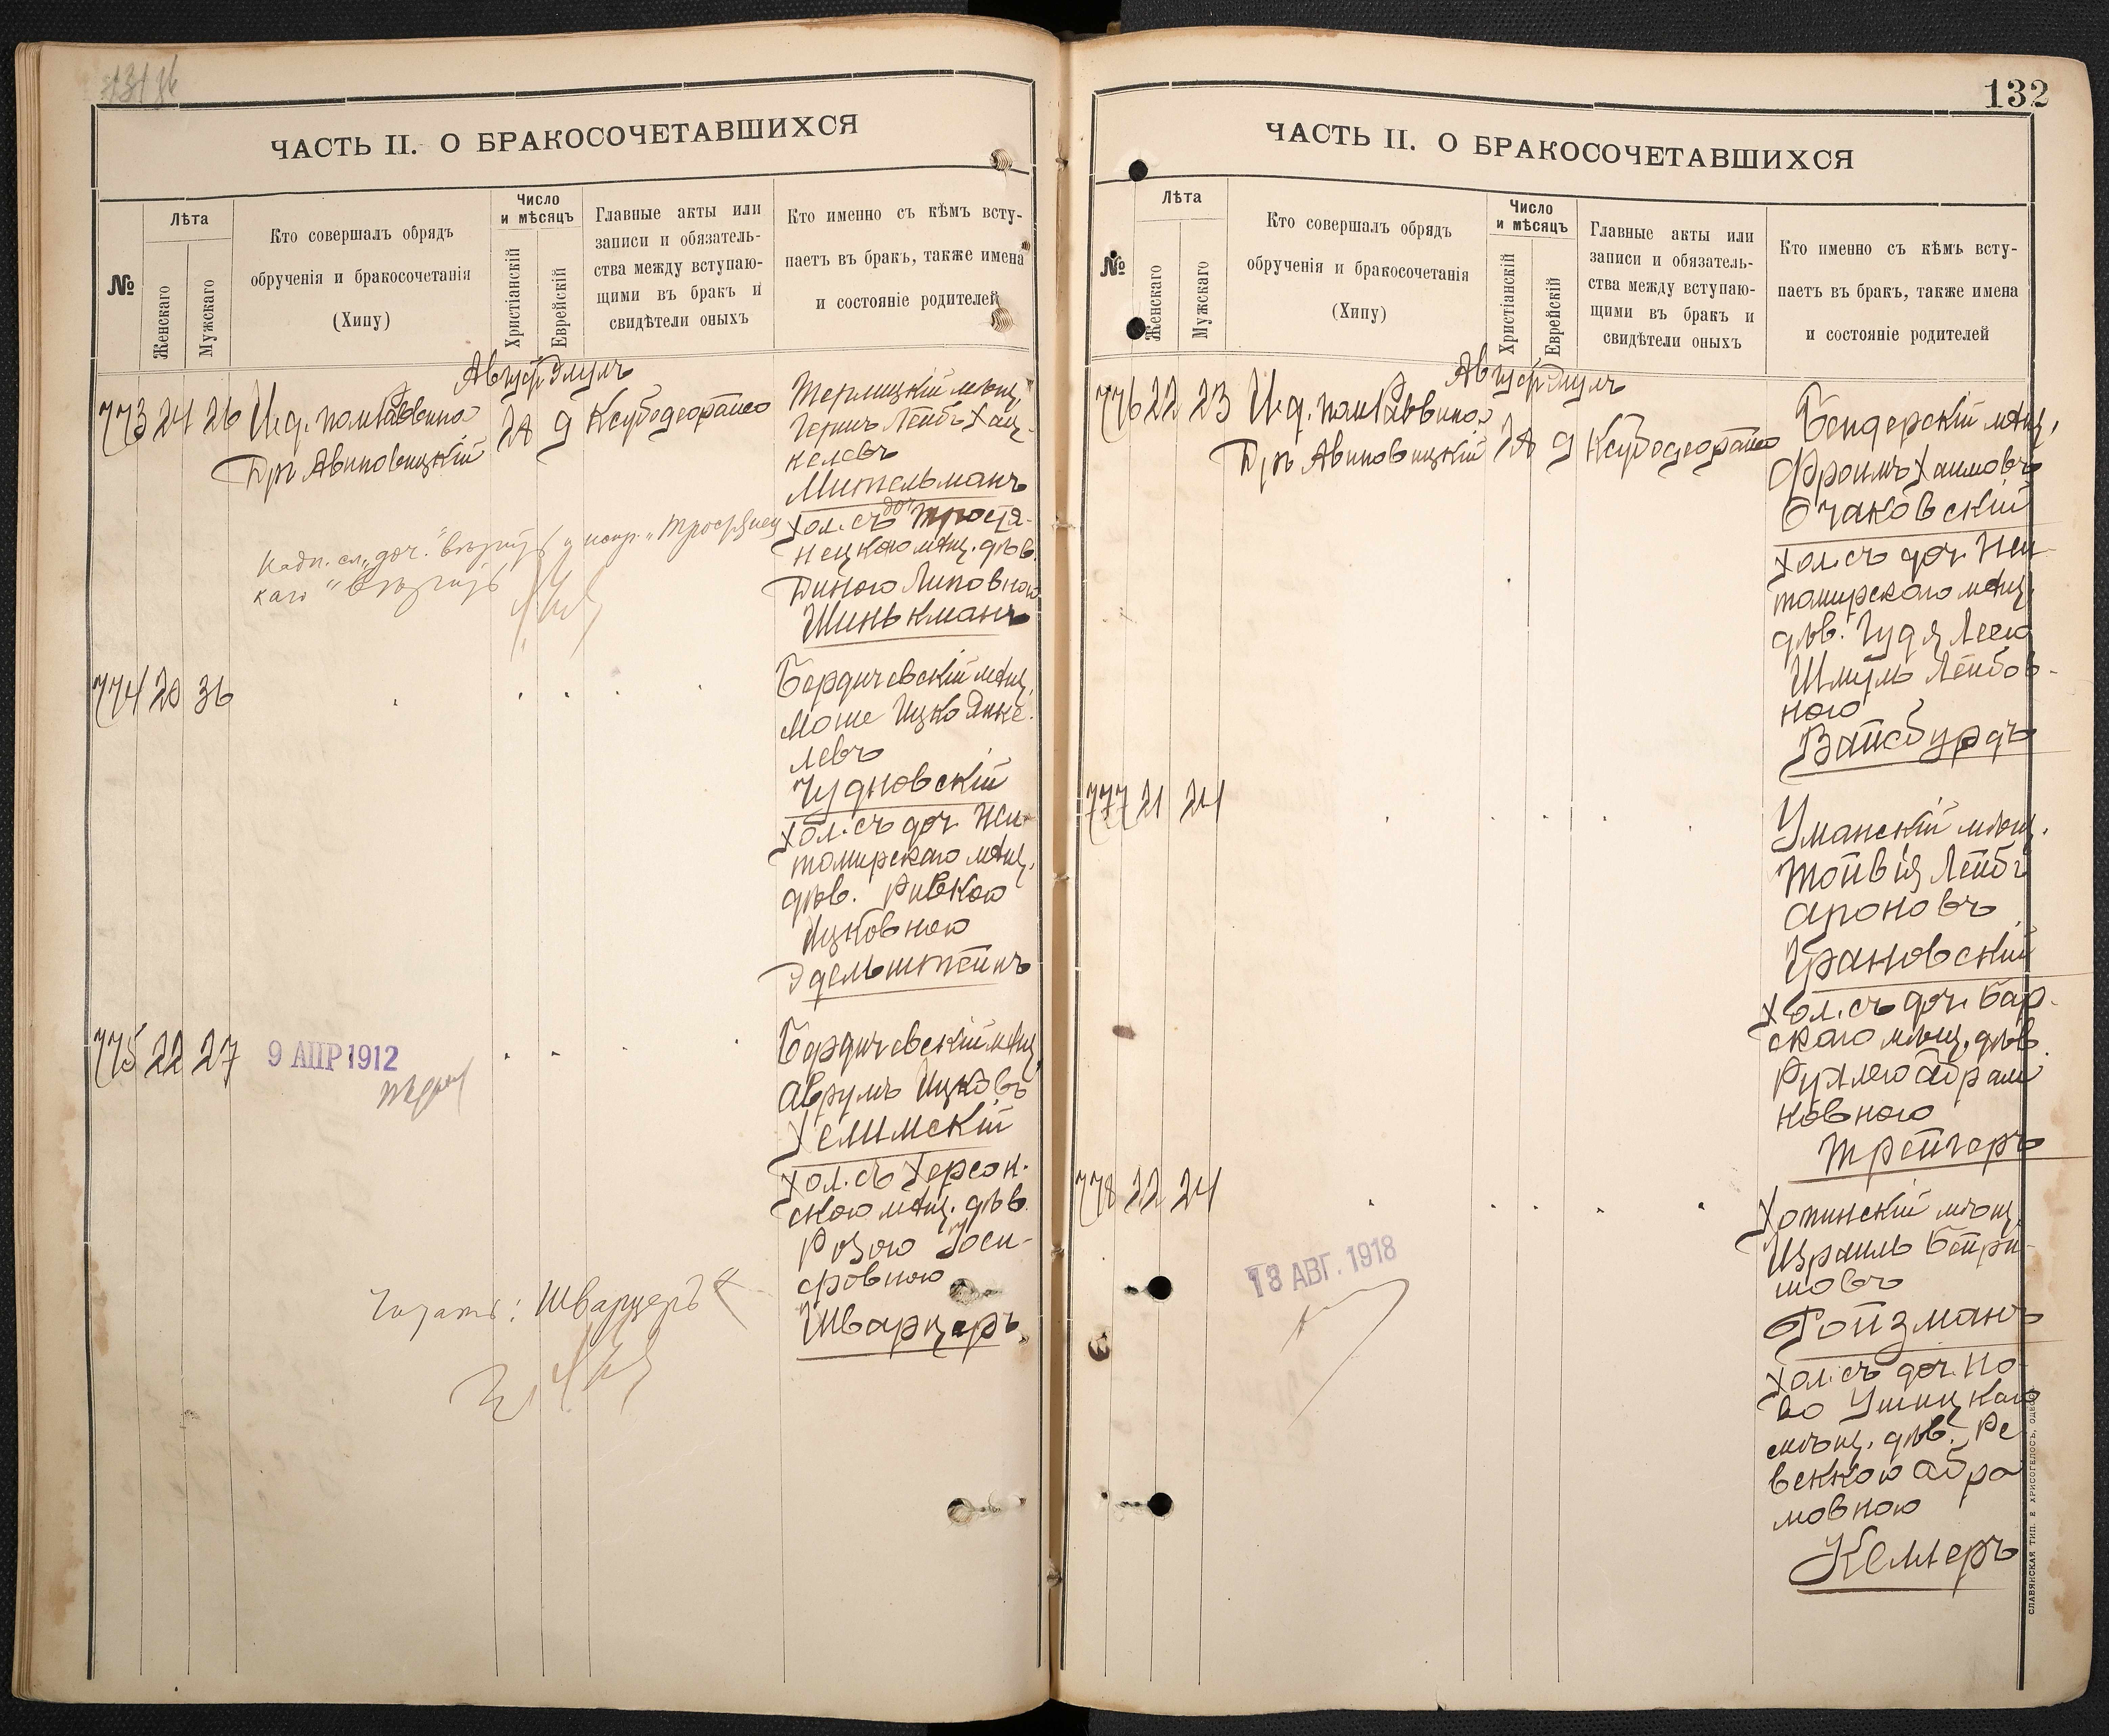 132
ЧАСТЬ II. О БРАКОСОЧЕТАВШИХСЯ
№
Лѣта
Женскаго
Мужскаго
Кто совершалъ обрядъ
обрученія и бракосочетанія
(Хипу)
Число
и мѣсяцъ
Христіанскій
Еврейскій
Главные акты или
записи и обязатель-
ства между вступаю-
щими въ бракъ и
свидѣтели оныхъ
Кто именно съ кѣмъ всту-
паетъ въ бракъ, также имена
и состояніе родителей
Август Элулъ
773 24 26 И.д. пом. Раввина
Д-ръ Авиновицкій
28 9
мѣщ.
Лейбъ Хац-
келевъ
Мительманъ
хол. съ доч. Тростя-
нецкаго мѣщ. дѣв.
Диною Липовною
Шинькманъ
Надп. сл. „доч." вѣрить и испр. „Тростянец
каго" вѣрить
774 20 36
Бердичевскій мѣщ.
Моше Ицко Янке-
левъ
Чудновскій
хол. съ доч. Жи-
томирскаго мѣщ.
дѣв. Ривкою
Ицковною
Эдельштейнъ
775 22 27
9 АПР 1912
Бердичевскій мѣщ.
Аврумъ Ицковъ
Хелимскій
хол. съ Херсон-
скою мѣщ. дѣв.
Розою Іоси-
фовною
Шварцеръ
Читать: Шварцеръ
ЧАСТЬ II. О БРАКОСОЧЕТАВШИХСЯ
№
Лѣта
Женскаго
Мужскаго
Кто совершалъ обрядъ
обрученія и бракосочетанія
(Хипу)
Число
и мѣсяцъ
Христіанскій
Еврейскій
Главные акты или
записи и обязатель-
ства между вступаю-
щими въ бракъ и
свидѣтели оныхъ
Кто именно съ кѣмъ всту-
паетъ въ бракъ, также имена
и состояніе родителей
Август Элулъ
776 22 23 И.д. пом. Раввина
Д-ръ Авиновицкій
28 9
Бендерскій мѣщ.
Фроимъ Хаимовъ
Очаковскій
хол. съ доч. Жи-
томирскаго мѣщ.
дѣв. Гудя Леею
Шмуль Лейбов-
ною
Вайсбурдъ
777 21 24
Уманскій мѣщ.
Тойвія Лейбъ
Ароновъ
Грановскій
хол. съ доч. Бар-
скаго мѣщ. дѣв.
Рухлею Абрам
ковною
Трейгеръ
778 22 24
18 АВГ. 1918
Хотинскій мѣщ.
Израиль Бейри-
шовъ
Ройзманъ
хол. съ доч. Но-
во Ушицкаго
мѣщ. дѣв. Ре-
веккою Абра
мовною
Келлеръ
СЛАВЯНСКАЯ ТИП. Е ХРИСОГЕЛОСЪ, ОДЕССА